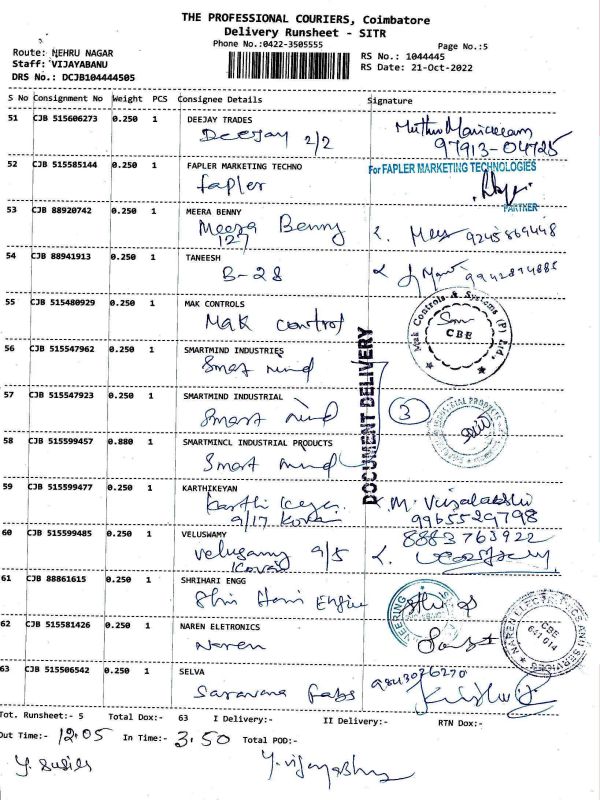 THE PROFESSIONAL COURIERS, Coimbatore
Delivery Runsheet - SITR
Phone No.:0422-3505555
Page No.:5
Route: NEHRU NAGAR
Staff: VIJAYABANU
DRS No.: DCJB104444505
RS No.: 1044445
RS Date: 21-Oct-2022
S No Consignment No Weight PCS Consignee Details Signature
51 CJB 515606273 0.250 1 DEEJAY TRADES
Deejay 2/2
97913-04725
52 CJB 515585144 0.250 1 FAPLER MARKETING TECHNO
For FAPLER MARKETING TECHNOLOGIES
fapler
PARTNER
53 CJB 88920742 0.250 1 MEERA BENNY
Meera Benny
127
9245869448
54 CJB 88941913 0.250 1 TANEESH
B-28
55 CJB 515480929 0.250 1 MAK CONTROLS
Mak control
Mak Controls & Systems (P) Ltd.,
CBE
56 CJB 515547962 0.250 1 SMARTMIND INDUSTRIES
Smart mind
DOCUMENT DELIVERY
57 CJB 515547923 0.250 1 SMARTMIND INDUSTRIAL
Smart mind
3
INDUSTRIAL PRODUCTS
58 CJB 515599457 0.880 1 SMARTMINCL INDUSTRIAL PRODUCTS
Smart mind
59 CJB 515599477 0.250 1 KARTHIKEYAN
9/17
9965529798
60 CJB 515599485 0.250 1 VELUSWAMY
8883763922
Velusamy 9/5
61 CJB 88861615 0.250 1 SHRIHARI ENGG
Shri Hari
62 CJB 515581426 0.250 1 NAREN ELETRONICS
Naren
NAREN ELECTRONICS AND SERVICES
CBE
641 014
63 CJB 515506542 0.250 1 SELVA
Saravana fabs
9843026270
Tot. Runsheet:- 5 Total Dox:- 63 I Delivery:- II Delivery:- RTN Dox:-
Out Time:- 12.05 In Time:- 3.50 Total POD:-